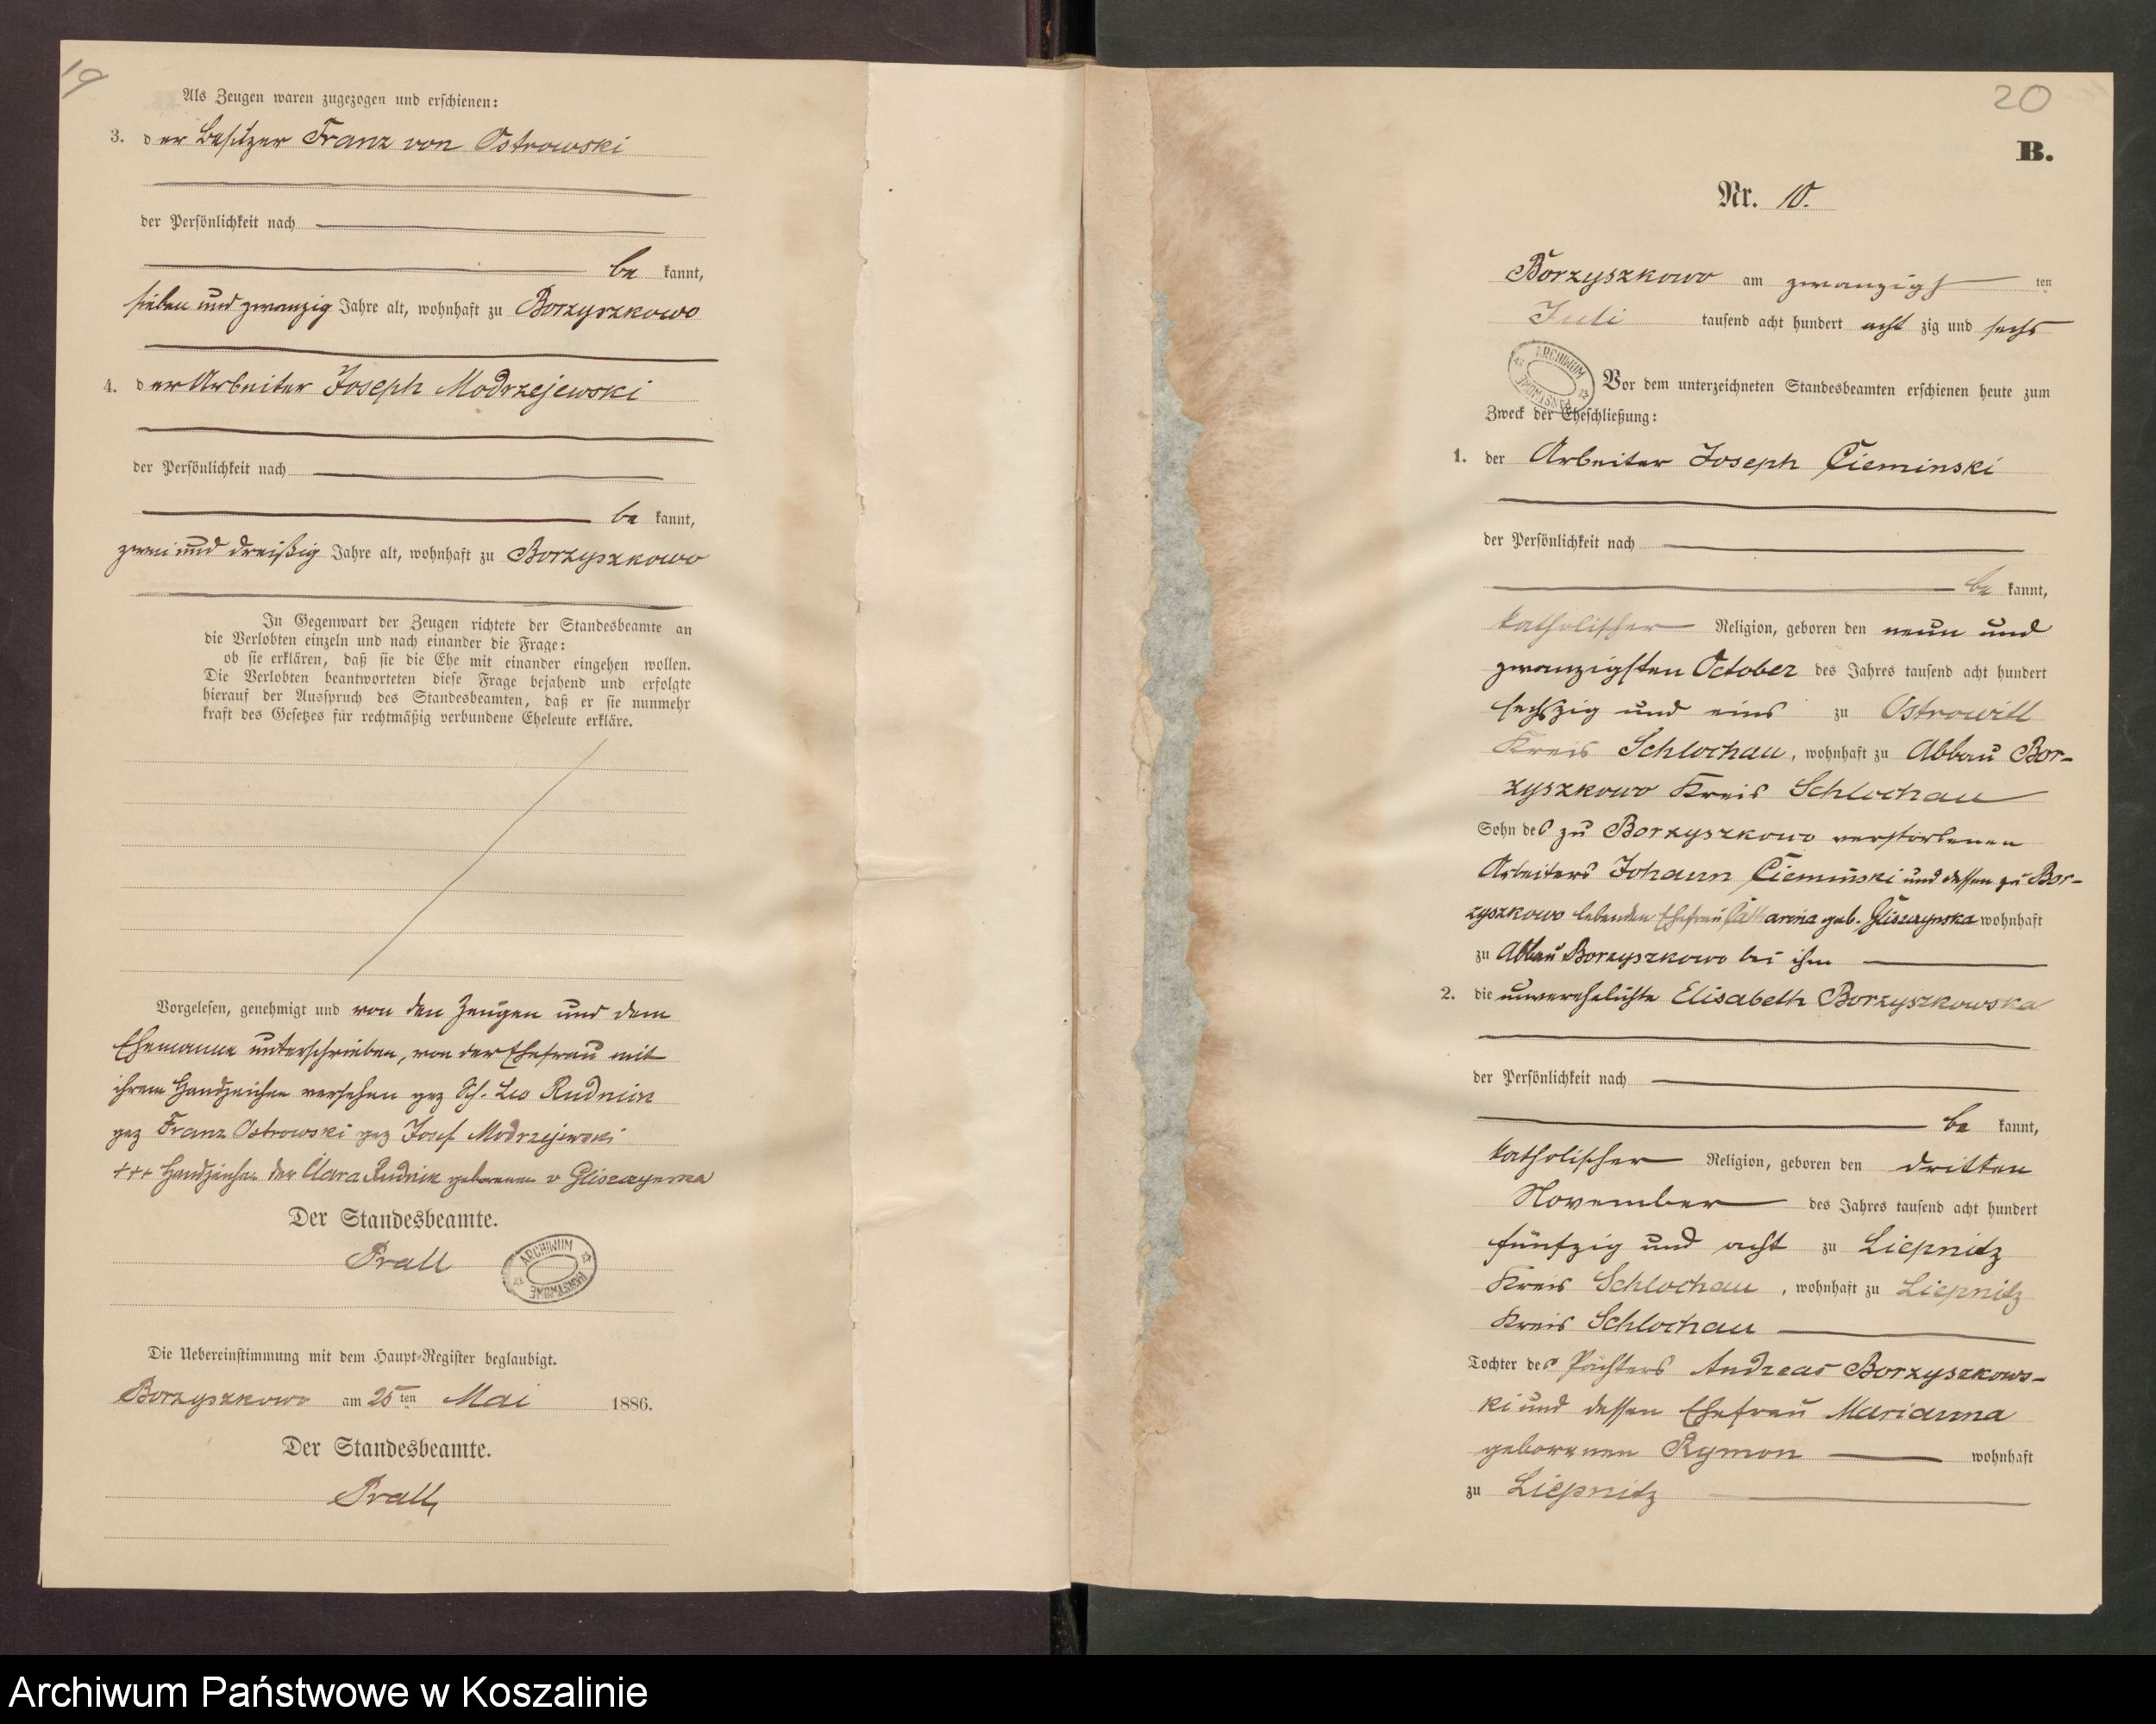 19
Als Zeugen waren zugezogen und erschienen:
3. der Besitzer Franz von Ostrowski
der Persönlichkeit nach
be kannt,
sieben und zwanzig Jahre alt, wohnhaft zu Borzyszkowo
4. der Arbeiter Joseph Modrzejewski
der Persönlichkeit nach
be kannt,
zwei und dreißig Jahre alt, wohnhaft zu Borzyszkowo
In Gegenwart der Zeugen richtete der Standesbeamte an
die Verlobten einzeln und nach einander die Frage:
ob sie erklären, daß sie die Ehe mit einander eingehen wollen.
Die Verlobten beantworteten diese Frage bejahend und erfolgte
hierauf der Ausspruch des Standesbeamten, daß er sie nunmehr
kraft des Gesetzes für rechtmäßig verbundene Eheleute erkläre.
Vorgelesen, genehmigt und von den Zeugen und dem
Ehemanne unterschrieben, von der Ehefrau mit
ihrem Handzeichen versehen gez Leo Rudnik
gez Franz Ostrowski gez Josef Modrzejewski
+++ Handzeichen der Clara Rudnik geborenen v Gliszczynska
Der Standesbeamte.
Prall
ARCHIWUM PAŃSTWOWE
Die Uebereinstimmung mit dem Haupt-Register beglaubigt.
Borzyszkowo am 25ten Mai 1886.
Der Standesbeamte.
Prall
20
B.
Nr. 10.
Borzyszkowo am zwanzigsten
Juli tausend acht hundert acht zig und sechs
ARCHIWUM PAŃSTWOWE
Vor dem unterzeichneten Standesbeamten erschienen heute zum
Zweck der Eheschließung:
1. der Arbeiter Joseph Cieminski
der Persönlichkeit nach
be kannt,
katholischer Religion, geboren den neun und
zwanzigsten October des Jahres tausend acht hundert
sechszig und eins zu Ostrowitt
Kreis Schlochau, wohnhaft zu Abbau Bor-
zyszkowo Kreis Schlochau
Sohn des zu Borzyszkowo verstorbenen
Arbeiters Johann Cieminski und dessen zu Bor-
zyszkowo lebenden Ehefrau Catharina geb. Gliszczynska wohnhaft
zu Abbau Borzyszkowo bei ihm
2. die unverehelichte Elisabeth Borzyszkowska
der Persönlichkeit nach
be kannt,
katholischer Religion, geboren den dritten
November des Jahres tausend acht hundert
fünfzig und acht zu Liepnitz
Kreis Schlochau, wohnhaft zu Liepnitz
Kreis Schlochau
Tochter des Pächters Andreas Borzyszkows-
ki und dessen Ehefrau Marianna
geborenen Rymon wohnhaft
zu Liepnitz
Archiwum Państwowe w Koszalinie